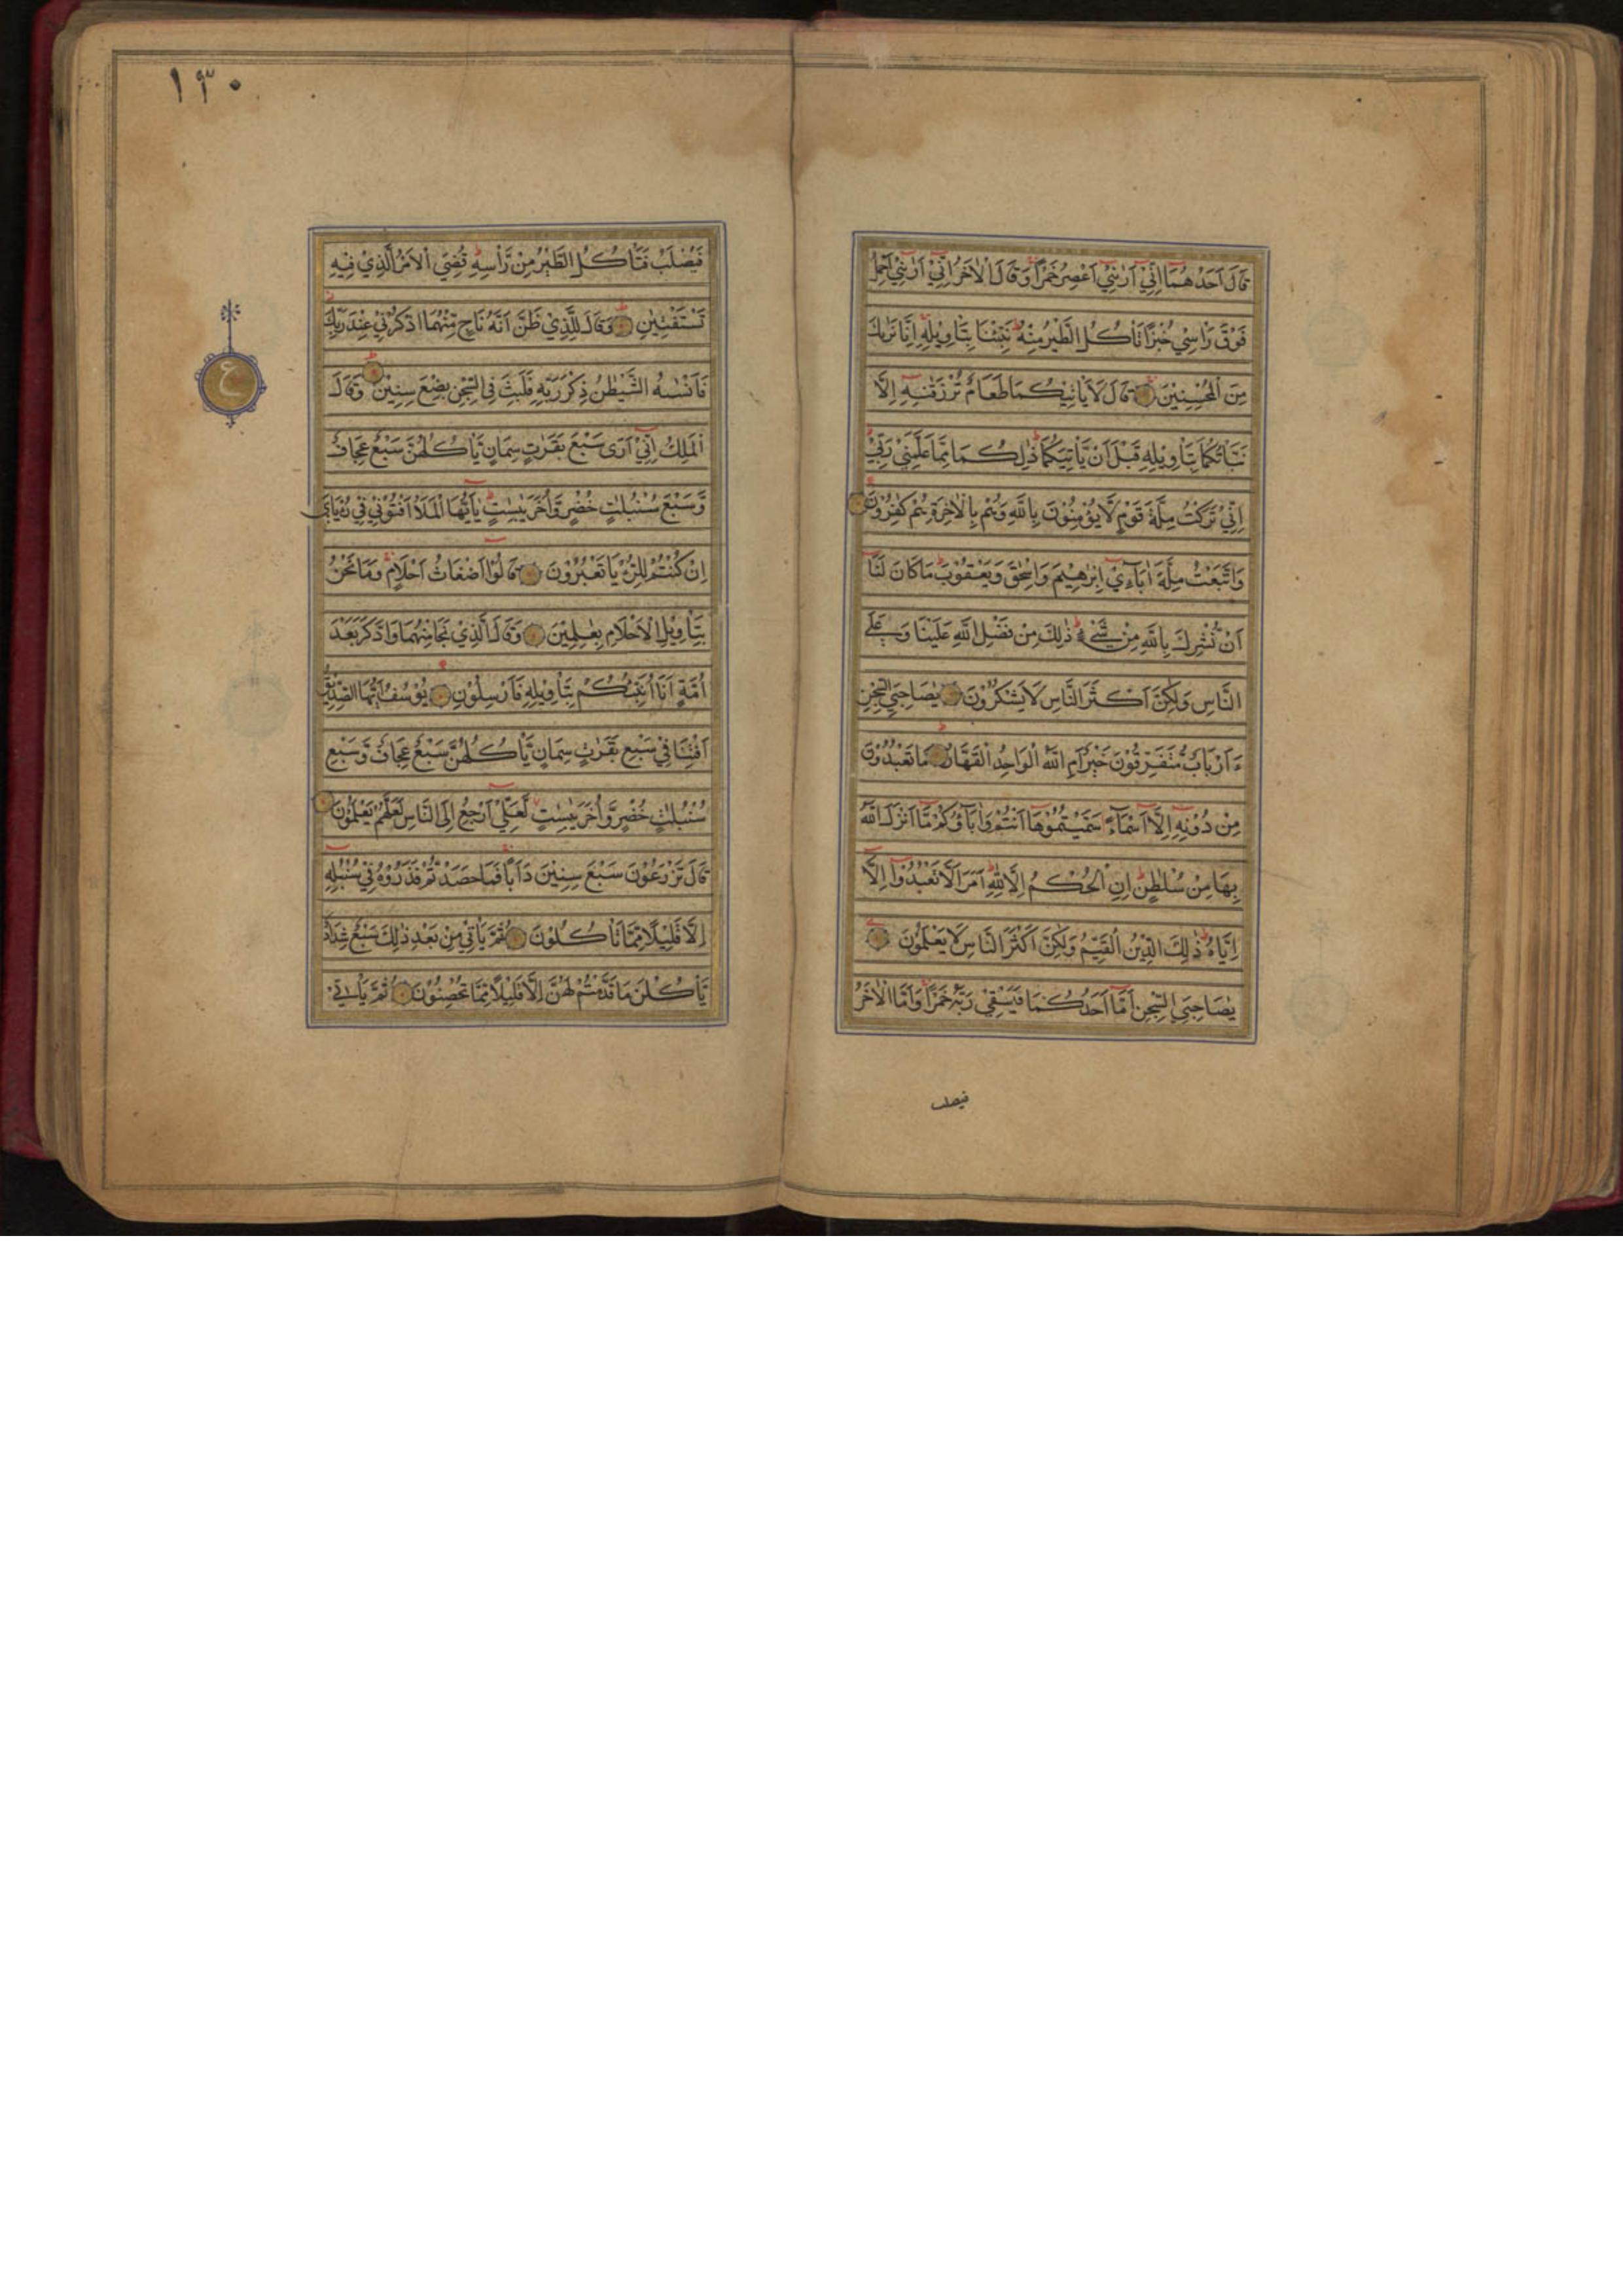 قَالَ اَحَدُهُمَا اِنِّيْ اَرٰىنِيْ اَعْصِرُ خَمْرًا وَقَالَ الْاٰخَرُ اِنِّيْ اَرٰىنِيْ اَحْمِلُ
فَوْقَ رَاْسِيْ خُبْزًا تَاْكُلُ الطَّيْرُ مِنْهُ نَبِّئْنَا بِتَاْوِيْلِهِ اِنَّا نَرٰىكَ
مِنَ الْمُحْسِنِيْنَ قَالَ لَا يَاْتِيْكُمَا طَعَامٌ تُرْزَقٰنِهِ اِلَّا
نَبَّاْتُكُمَا بِتَاْوِيْلِهِ قَبْلَ اَنْ يَّاْتِيَكُمَا ذٰلِكُمَا مِمَّا عَلَّمَنِيْ رَبِّيْ
اِنِّيْ تَرَكْتُ مِلَّةَ قَوْمٍ لَّا يُؤْمِنُوْنَ بِاللّٰهِ وَهُمْ بِالْاٰخِرَةِ هُمْ كٰفِرُوْنَ
وَاتَّبَعْتُ مِلَّةَ اٰبَآءِيْ اِبْرٰهِيْمَ وَاِسْحٰقَ وَيَعْقُوْبَ مَا كَانَ لَنَا
اَنْ نُّشْرِكَ بِاللّٰهِ مِنْ شَيْءٍ ذٰلِكَ مِنْ فَضْلِ اللّٰهِ عَلَيْنَا وَعَلَى
النَّاسِ وَلٰكِنَّ اَكْثَرَ النَّاسِ لَا يَشْكُرُوْنَ يٰصَاحِبَيِ السِّجْنِ
ءَاَرْبَابٌ مُّتَفَرِّقُوْنَ خَيْرٌ اَمِ اللّٰهُ الْوَاحِدُ الْقَهَّارُ مَا تَعْبُدُوْنَ
مِنْ دُوْنِهِ اِلَّا اَسْمَآءً سَمَّيْتُمُوْهَا اَنْتُمْ وَاٰبَآؤُكُمْ مَّا اَنْزَلَ اللّٰهُ
بِهَا مِنْ سُلْطٰنٍ اِنِ الْحُكْمُ اِلَّا لِلّٰهِ اَمَرَ اَلَّا تَعْبُدُوْا اِلَّا
اِيَّاهُ ذٰلِكَ الدِّيْنُ الْقَيِّمُ وَلٰكِنَّ اَكْثَرَ النَّاسِ لَا يَعْلَمُوْنَ
يٰصَاحِبَيِ السِّجْنِ اَمَّا اَحَدُكُمَا فَيَسْقِيْ رَبَّهُ خَمْرًا وَاَمَّا الْاٰخَرُ
فيصلب
١٣٠
فَيُصْلَبُ فَتَاْكُلُ الطَّيْرُ مِنْ رَّاْسِهِ قُضِيَ الْاَمْرُ الَّذِيْ فِيْهِ
تَسْتَفْتِيٰنِ وَقَالَ لِلَّذِيْ ظَنَّ اَنَّهُ نَاجٍ مِّنْهُمَا اذْكُرْنِيْ عِنْدَ رَبِّكَ
فَاَنْسٰىهُ الشَّيْطٰنُ ذِكْرَ رَبِّهِ فَلَبِثَ فِي السِّجْنِ بِضْعَ سِنِيْنَ وَقَالَ
ع
الْمَلِكُ اِنِّيْ اَرٰى سَبْعَ بَقَرٰتٍ سِمَانٍ يَّاْكُلُهُنَّ سَبْعٌ عِجَافٌ
وَّسَبْعَ سُنْبُلٰتٍ خُضْرٍ وَّاُخَرَ يٰبِسٰتٍ يٰاَيُّهَا الْمَلَاُ اَفْتُوْنِيْ فِيْ رُءْيَايَ
اِنْ كُنْتُمْ لِلرُّءْيَا تَعْبُرُوْنَ قَالُوْا اَضْغَاثُ اَحْلَامٍ وَمَا نَحْنُ
بِتَاْوِيْلِ الْاَحْلَامِ بِعٰلِمِيْنَ وَقَالَ الَّذِيْ نَجَا مِنْهُمَا وَادَّكَرَ بَعْدَ
اُمَّةٍ اَنَا اُنَبِّئُكُمْ بِتَاْوِيْلِهِ فَاَرْسِلُوْنِ يُوْسُفُ اَيُّهَا الصِّدِّيْقُ
اَفْتِنَا فِيْ سَبْعِ بَقَرٰتٍ سِمَانٍ يَّاْكُلُهُنَّ سَبْعٌ عِجَافٌ وَّسَبْعِ
سُنْبُلٰتٍ خُضْرٍ وَّاُخَرَ يٰبِسٰتٍ لَّعَلِّيْ اَرْجِعُ اِلَى النَّاسِ لَعَلَّهُمْ يَعْلَمُوْنَ
قَالَ تَزْرَعُوْنَ سَبْعَ سِنِيْنَ دَاَبًا فَمَا حَصَدْتُّمْ فَذَرُوْهُ فِيْ سُنْبُلِهِ
اِلَّا قَلِيْلًا مِّمَّا تَاْكُلُوْنَ ثُمَّ يَاْتِيْ مِنْ بَعْدِ ذٰلِكَ سَبْعٌ شِدَادٌ
يَّاْكُلْنَ مَا قَدَّمْتُمْ لَهُنَّ اِلَّا قَلِيْلًا مِّمَّا تُحْصِنُوْنَ ثُمَّ يَاْتِيْ